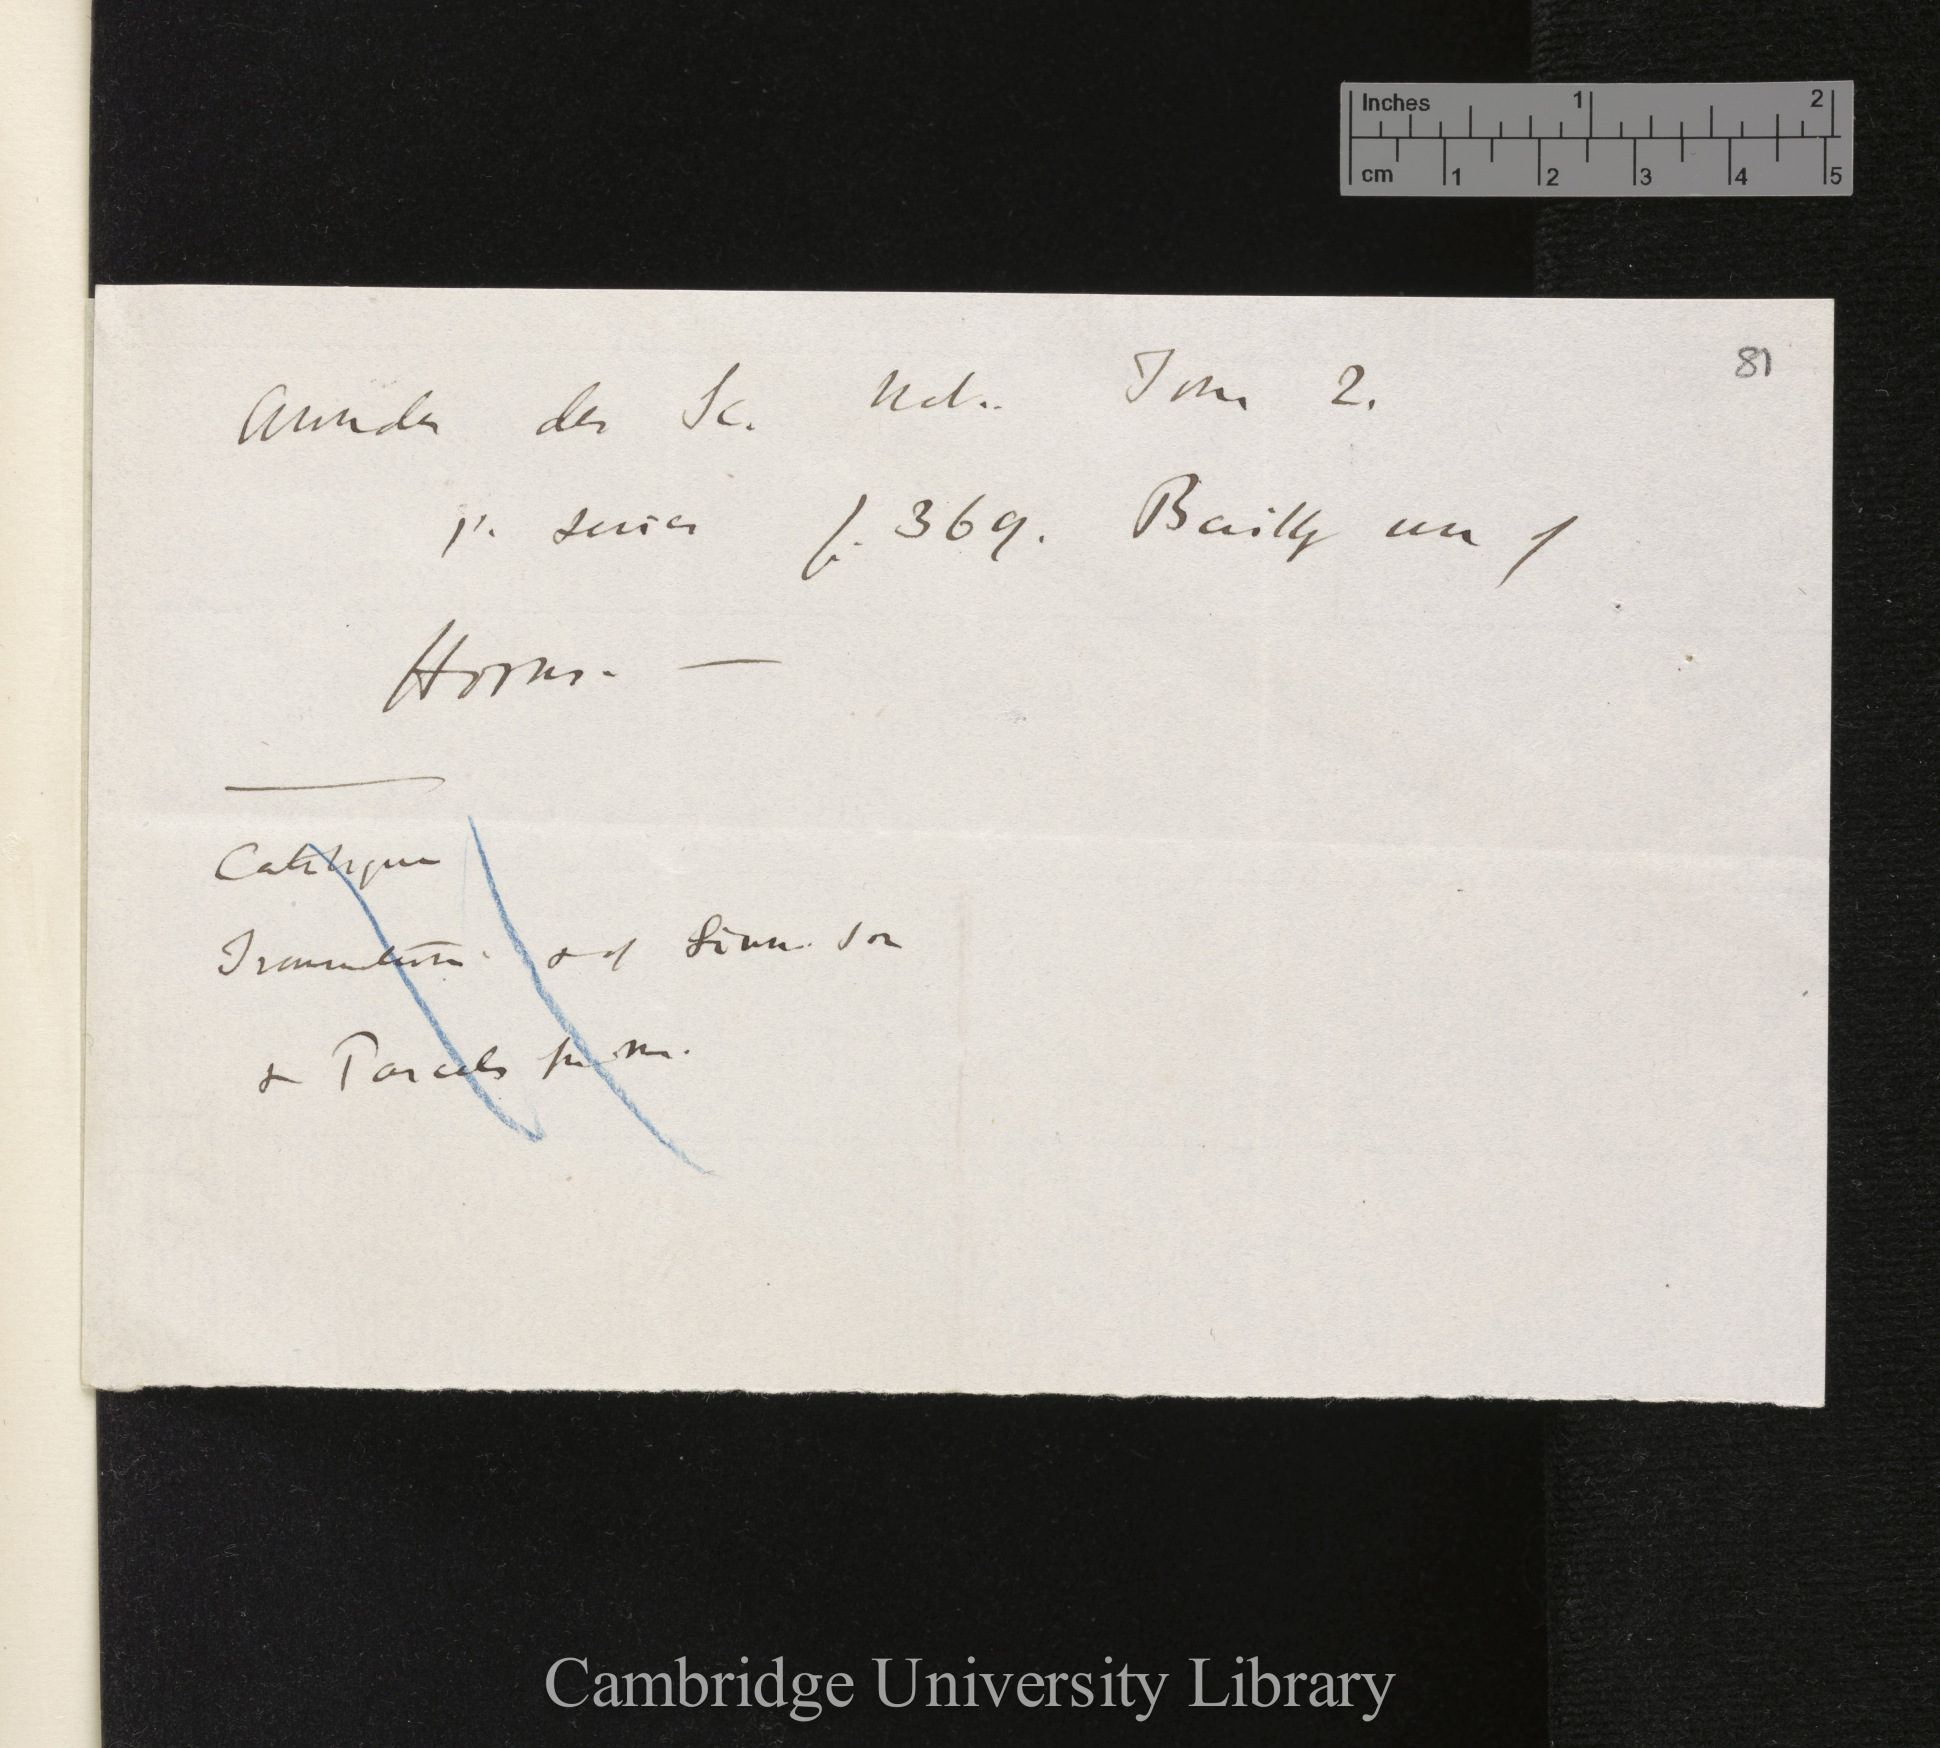 Inches 1 2
cm 1 2 3 4 5
81
Annales des Sc. Nat.. Tom 2.
1r. series p. 369. Bailly use of
Horns. —
Catalogue
Transactions & of Linn. Soc
& Parcels from.
Cambridge University Library